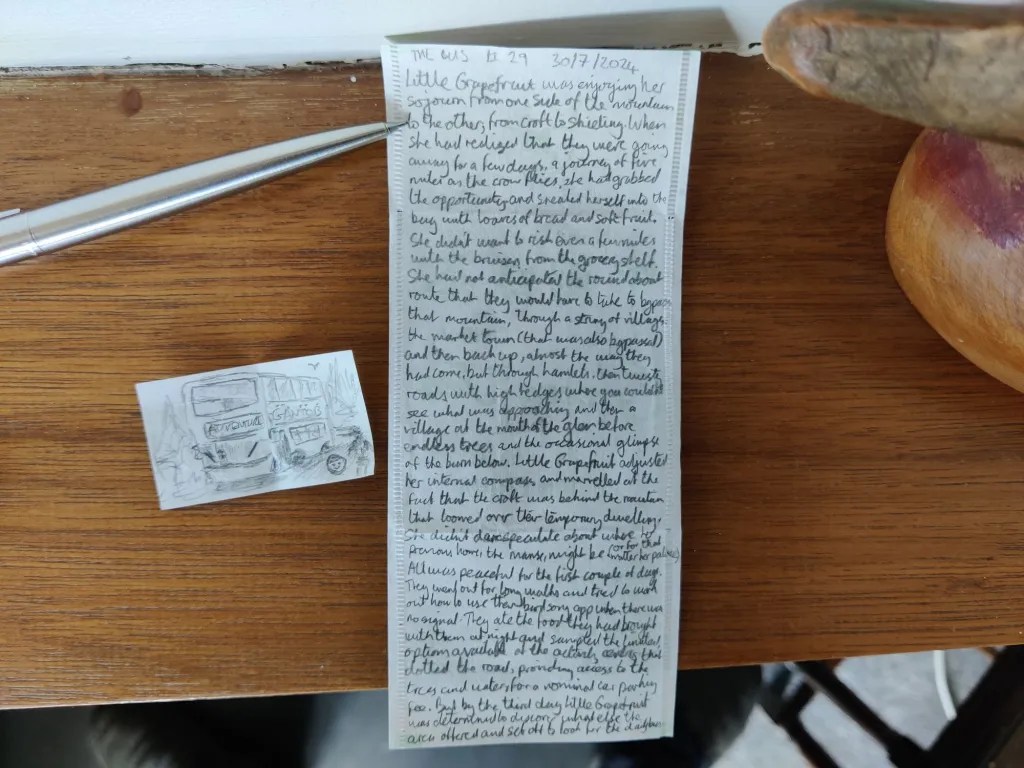 THE BUS 29 30/7/2024
Little Grapefruit was enjoying her
sojourn from one side of the mountain
to the other, from croft to shieling. When
she had realized that they were going
away for a few days, a journey of five
miles as the crow flies, she had grabbed
the opportunity and sneaked herself into the
bag with loaves of bread and soft fruit.
She didn't want to risk even a few miles
with the bruisers from the grocery shelf.
She had not anticipated the round about
route that they would have to take to bypass
that mountain, through a string of villages
the market town (that was also bypassed)
and then back up, almost the way they
had come, but through hamlets, then twisty
roads with high hedges where you couldn't
see what was approaching and then a
village at the mouth of the glen before
endless trees and the occasional glimpse
of the burn below. Little Grapefruit adjusted
her internal compass and marvelled at the
fact that the croft was behind the mountain
that loomed over their temporary dwelling.
She didn't dare speculate about where her
previous home, the manse, might be (or for that
matter her palace)
All was peaceful for the first couple of days.
They went out for long walks and tried to work
out how to use their birdsong app when there was
no signal. They ate the food they had brought
with them at night and sampled the limited
options available at the activity centres that
dotted the road, providing access to the
trees and water, for a nominal car parking
fee. But by the third day Little Grapefruit
was determined to discover what else the
area offered and set off to look for the
ADVENTURE